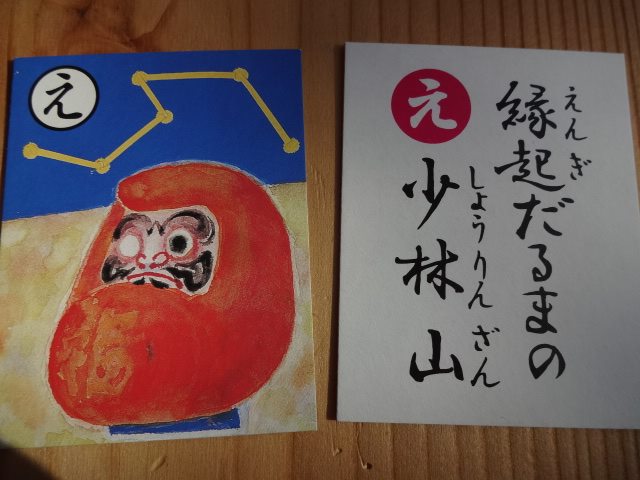 え
福
え
縁起だるまの
えんぎ
少林山
しょうりんざん